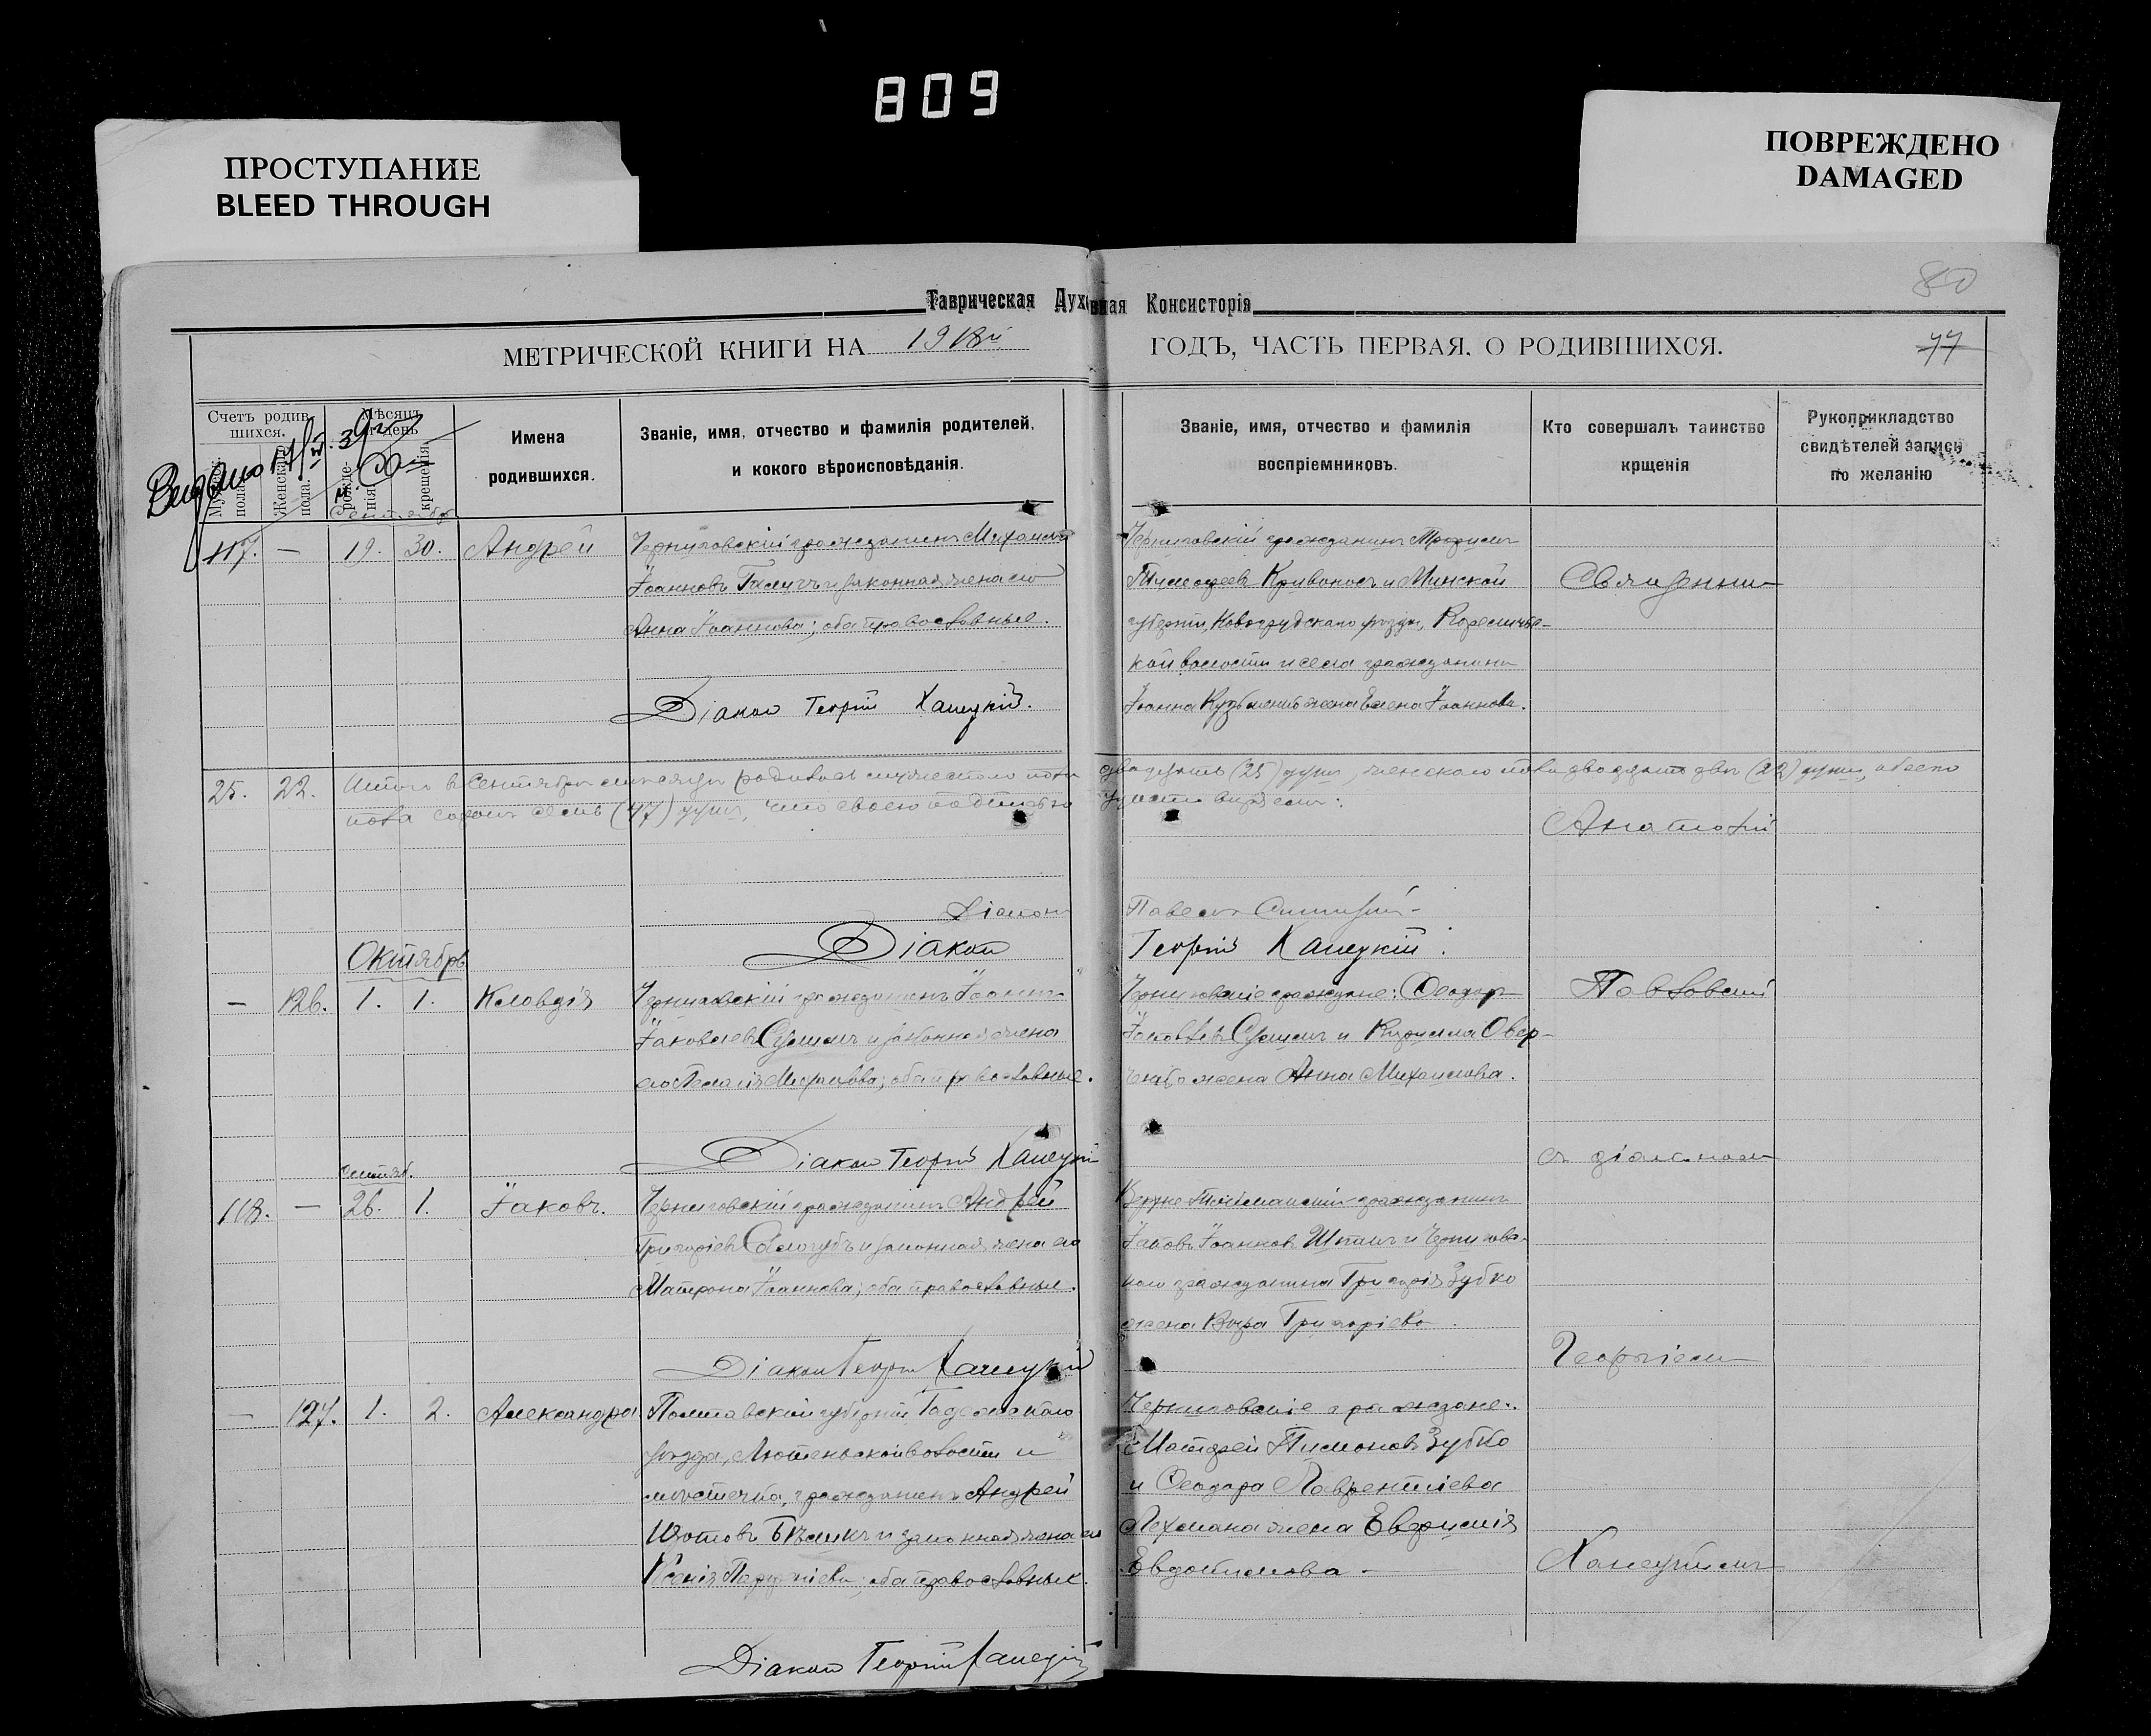 809
ПРОСТУПАНИЕ
BLEED THROUGH
ПОВРЕЖДЕНО
DAMAGED
80
Таврическая Духовная Консисторія
МЕТРИЧЕСКОЙ КНИГИ НА 1918й ГОДЪ, ЧАСТЬ ПЕРВАЯ, О РОДИВШИХСЯ.
77
Счетъ родив-
шихся.
Мужска
пола.
Женскаго
пола.
Мѣсяцъ
и день
рожде-
нія.
крещенія.
Имена
родившихся.
Званіе, имя, отчество и фамилія родителей,
и кокого вѣроисповѣданія.
Званіе, имя, отчество и фамилія
воспріемниковъ.
Кто совершалъ таинство
крщенія
Рукоприкладство
свидѣтелей записи
по желанію
Сентябрь
117. — 19. 30. Андрей
Черниговскій гражданинъ Михаилъ
Іоанновъ и законная жена его
Анна Іоаннова; оба православные.
Діакон Георгій Ханецкій.
Черниговскій гражданинъ Трофимъ
Тимофеевъ Кривоносъ и Минской
губерніи, Новогрудскаго уѣзда,
кой волости и села гражданина
Іоанна жена Елена Іоаннова.
Священни-
25. 22. Итого въ Сентябрѣ мѣсяцѣ родилось мужескаго пола двадцать пять (25) душ, женскаго пола двадцать два (22) души, обоего
пола сорокъ семь (47) душъ, что своею подписью
Анатолій
Діаконъ Павелъ
Діакон Георгій Ханецкій.
Октябрь
— 126. 1. 1. Клавдія
Черниговскій гражданинъ Іоаннъ
Іаковлевъ и законная жена
его Пелагія Михайлова; оба православные.
Діакон Георгій Ханецкій
Черниговскіе граждане: Феодоръ
Іаковлевъ и Кирилла Овер-
ченко жена Анна Михайлова.
Павловскій
съ діакономъ
сентяб.
118. — 26. 1. Іаковъ.
Черниговскій гражданинъ Андрей
Григоріевъ Сологубъ и законная жена его
Матрона Іоаннова; оба православные.
Діакон Георгій Ханецкій
Верхне-Токмакскій гражданинъ
Іаковъ Іоанновъ Шпакъ и Чернигов-
каго гражданина Григорія Зубко
жена Вѣра Григоріева.
Георгіемъ
— 127. 1. 2. Александра.
Полтавской губерніи Гадячскаго
уѣзда, Лютенской волости и
мѣстечка, гражданинъ Андрей
Изотовъ Бѣликъ и законная жена его
Ксенія; оба православные.
Діакон Георгій Ханецкій
Черниговскіе граждане:
Матфей Пимоновъ Зубко
и Феодора Лаврентіева
Лехмана жена Евфимія
Евдокимова —
Ханецкимъ